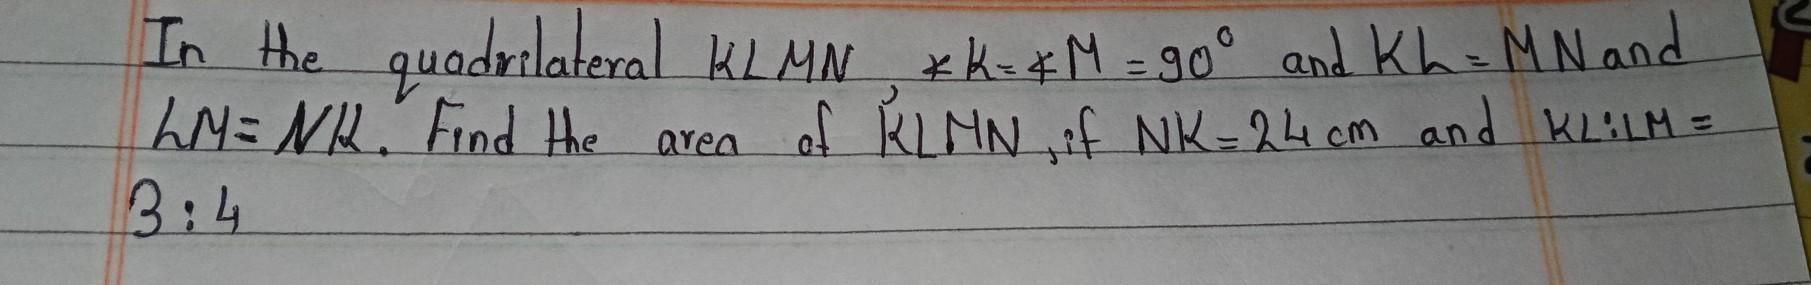 In the quadrilateral KLMN, ∡K=∡M=90° and KL=MN and
LM=NK. Find the area of KLMN, if NK=24cm and KL:LM=
3:4